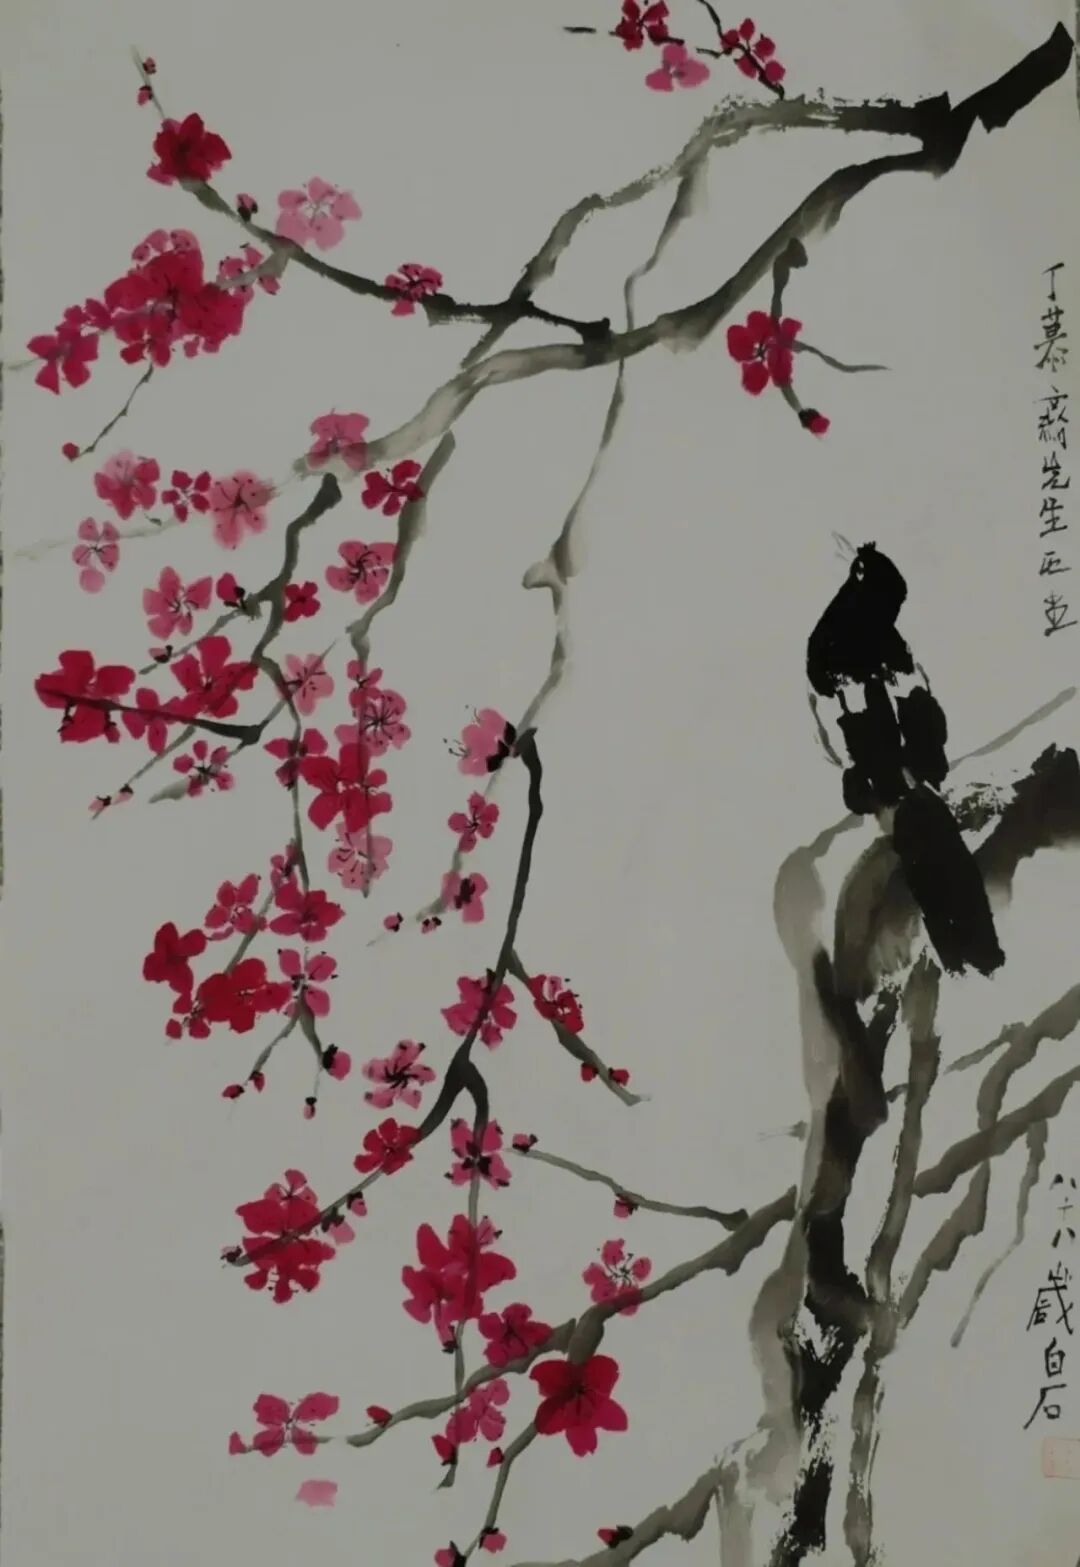 丁慕斋先生正画
八十八岁白石